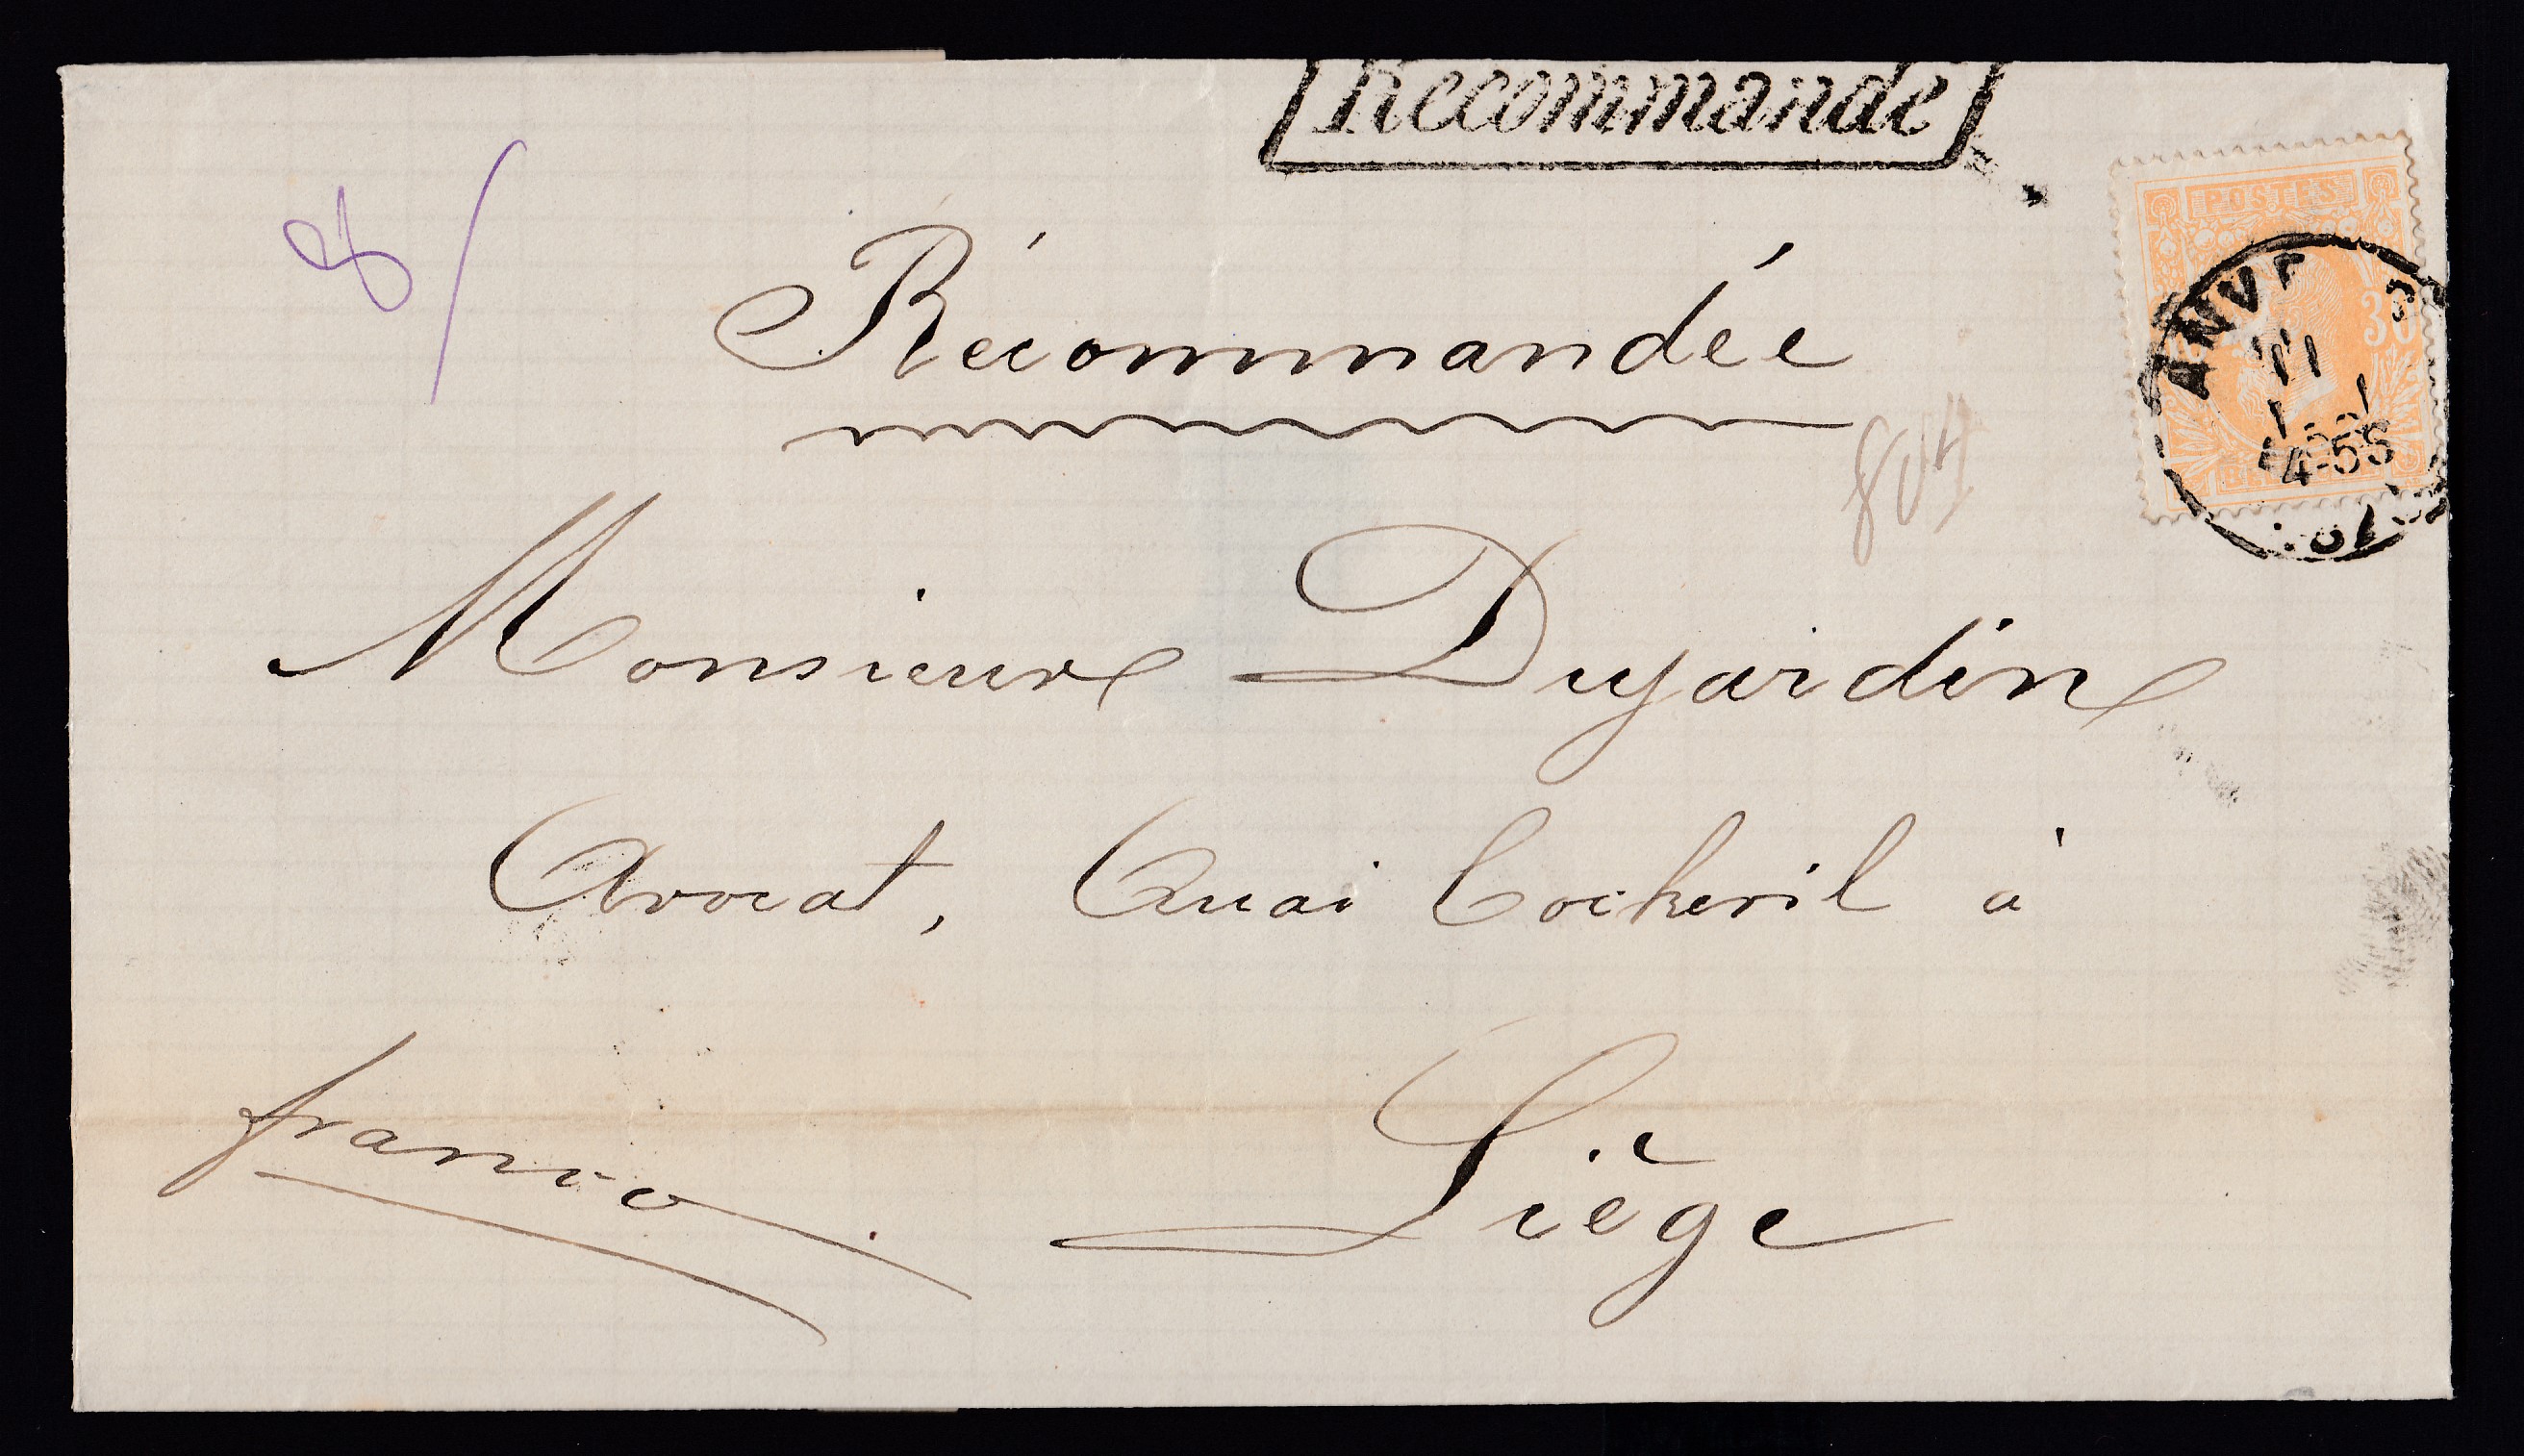 Recommandé
POSTES
30
ANVE
11
4-5S
8
Récommandée
804
Monsieur Dujardin
Avocat, Quai Cockeril à
franco
Liège